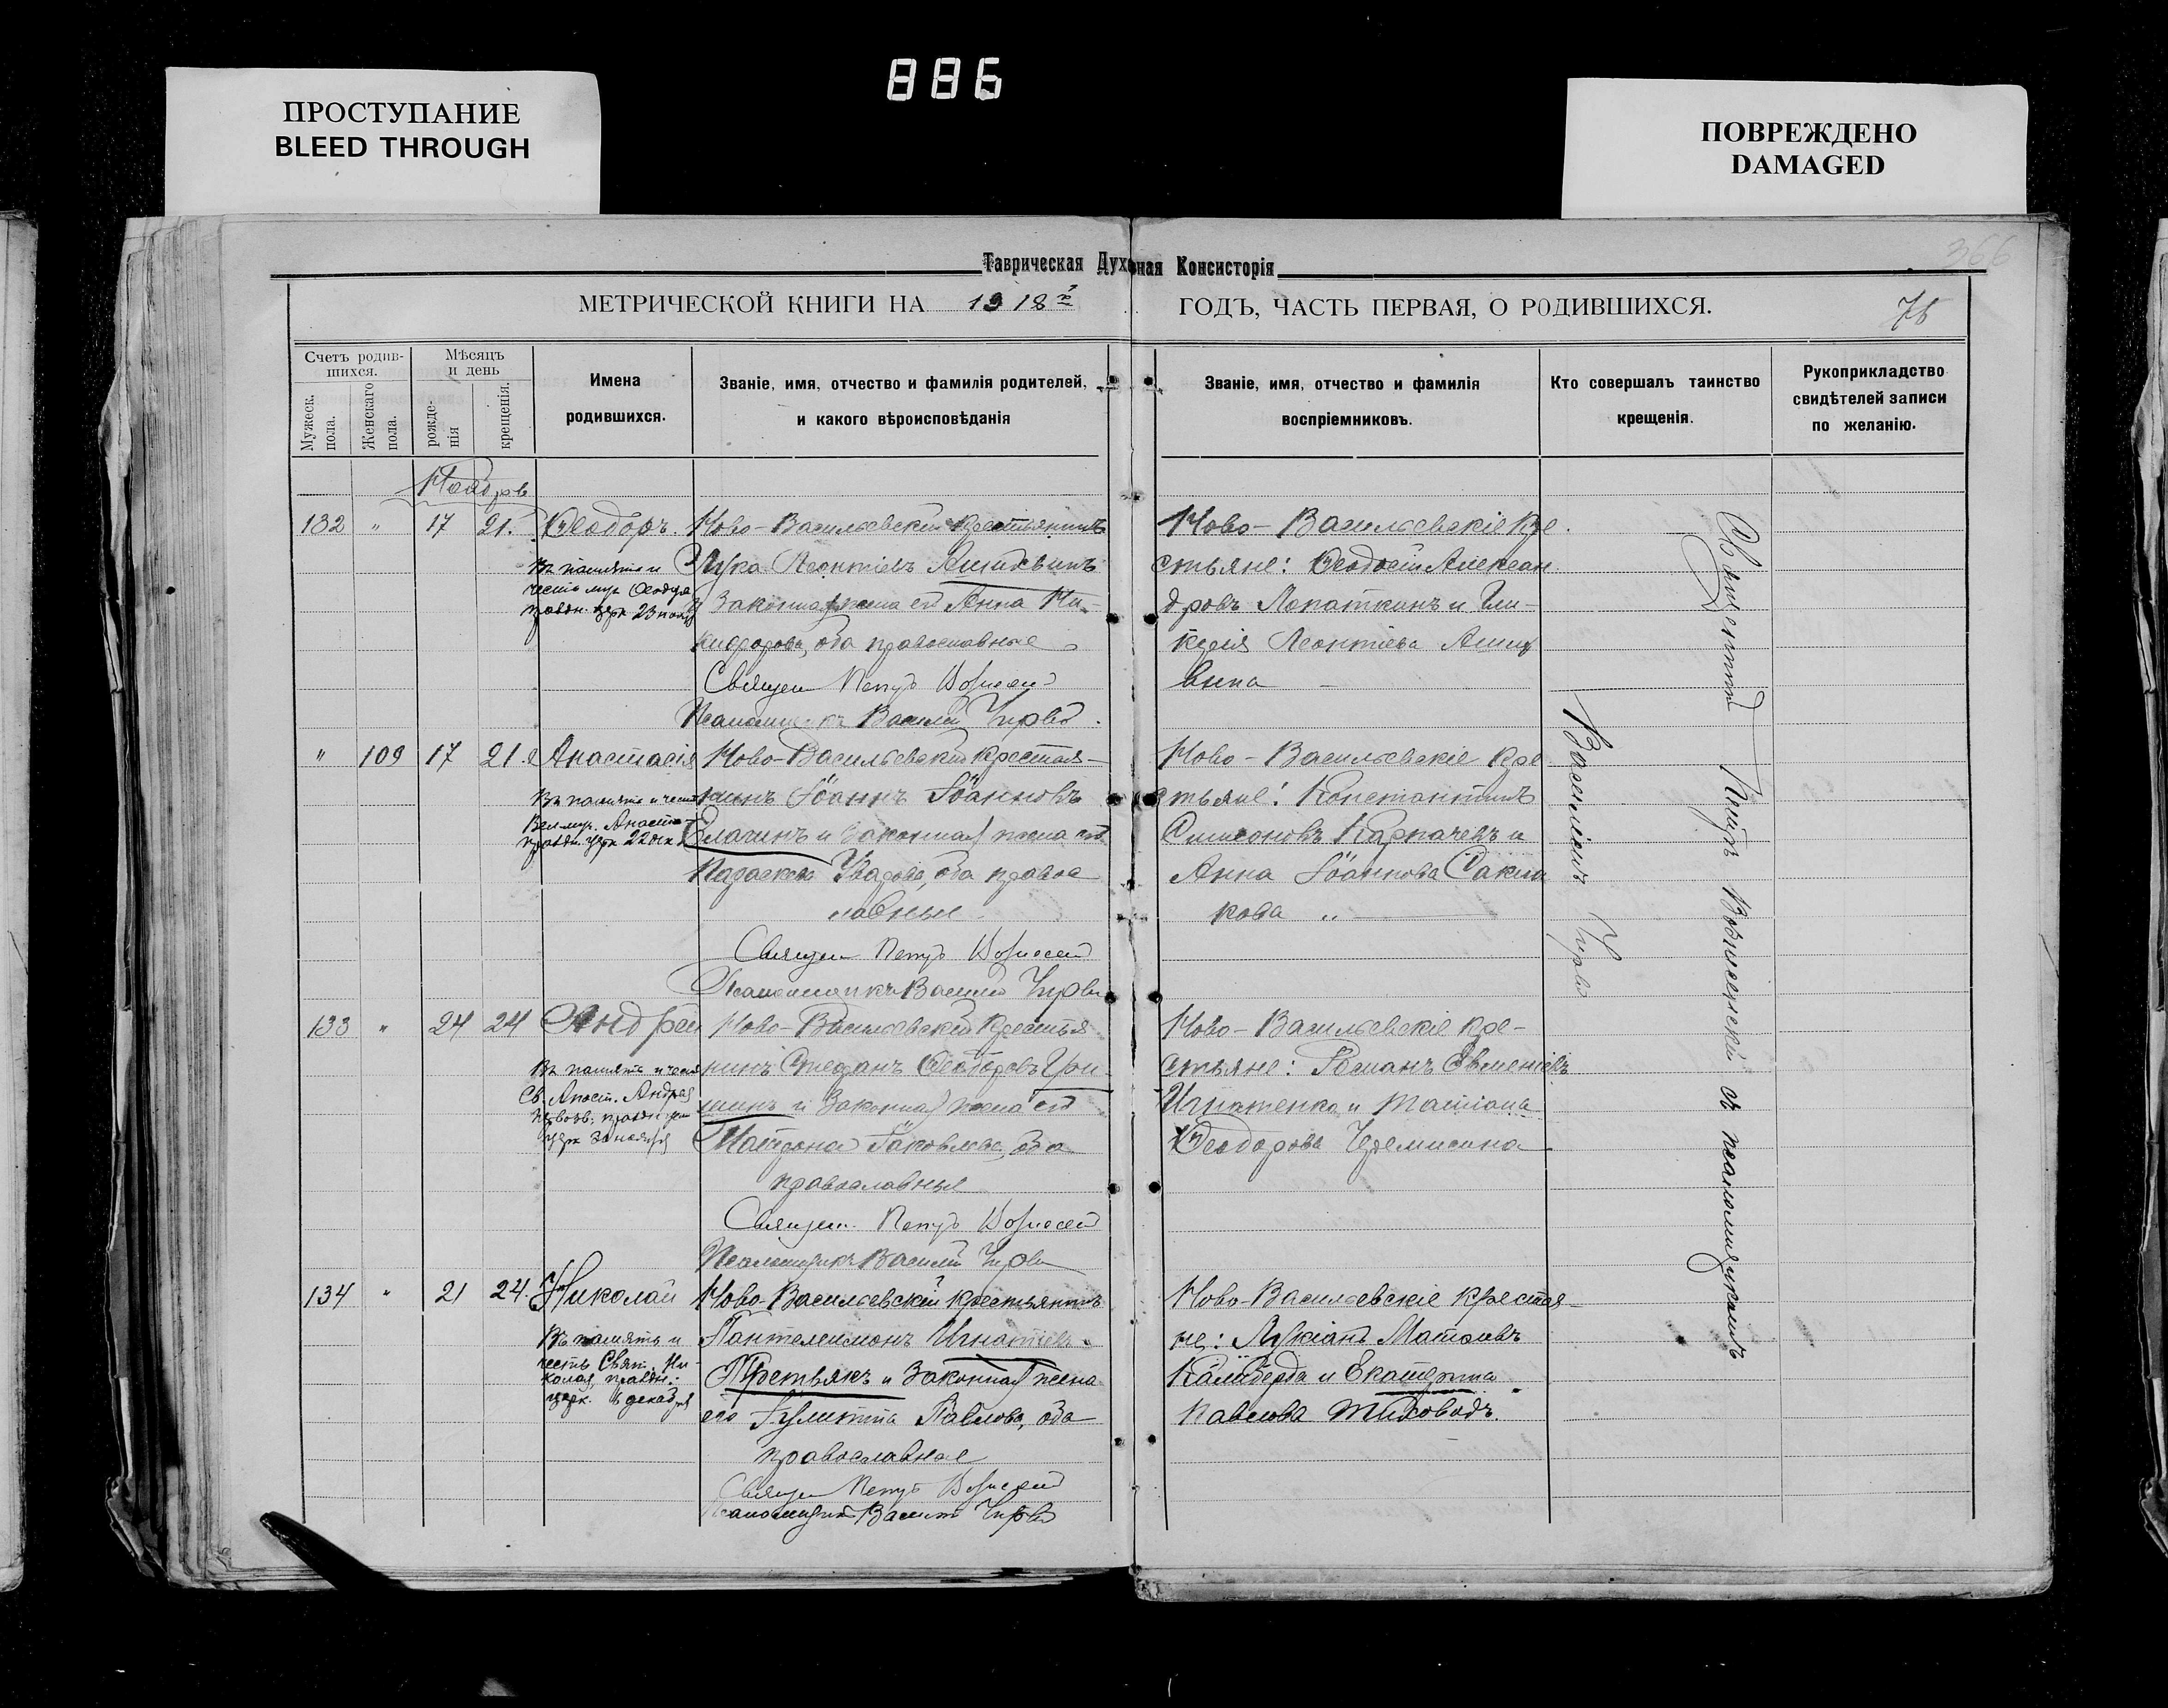 886
ПРОСТУПАНИЕ
BLEED THROUGH
ПОВРЕЖДЕНО
DAMAGED
Таврическая Духовная Консисторія
366
МЕТРИЧЕСКОЙ КНИГИ НА 1918 ГОДЪ, ЧАСТЬ ПЕРВАЯ, О РОДИВШИХСЯ.
Счетъ родив-
шихся.
Мужеск.
пола.
Женскаго
пола.
Мѣсяцъ
и день
рожде-
нія
крещенія.
Имена
родившихся.
Званіе, имя, отчество и фамилія родителей,
и какого вѣроисповѣданія
Званіе, имя, отчество и фамилія
воспріемниковъ.
Кто совершалъ таинство
крещенія.
Рукоприкладство
свидѣтелей записи
по желанію.
132 " 17 21. Ѳеодоръ.
Въ память и
праздн. церк 23
Ново-Васильевскій крестьянинъ
Лука Леонтіевъ
законная жена его Анна Ни-
кифорова, оба православные
Священ Петръ Вознесен
Псаломщикъ Василій Чирва
Ново-Васильевскіе кре
стьяне: Ѳеодосій Алексан
дровъ Лопаткинъ и Гли-
керія Леонтіева
вина
" 109 17 21 Анастасія
Въ память и честь
Вел. муч. Анаст
праздн. церк 22 дек
Ново-Васильевскій крестья-
нинъ Іоаннъ Іоанновъ
и законная жена его
Параскева Уварова, оба правос
лавные
Священ Петръ Вознесен
Псаломщикъ Василій Чирва
Ново-Васильевскіе кре
стьяне: Константинъ
Симеоновъ Карпачевъ и
Анна Іоаннова
кова "
133 " 24 24 Андрей
Въ память и честь
Св. Апост. Андрея
Первозв. праздн
церк 30 ноября
Ново-Васильевскій крестья
нинъ Стефанъ Ѳеодоровъ Гри-
шинъ и законная жена его
Матрона Іаковлева, оба
православные
Священ. Петръ Вознесен
Псаломщикъ Василій Чирва
Ново-Васильевскіе кре-
стьяне: Романъ Евменіевъ
Игнатенко и Татіана
Ѳеодорова Черемисина
134 " 21 24. Николай
Въ память и
честь Свят. Ни-
колая, праздн.
церк. 6 декабря
Ново-Васильевскій крестьянинъ
Пантелеимонъ Игнатіевъ
Третьякъ и законная жена
его Іулитта Павлова, оба
православные
Священ Петръ Вознесен
Псаломщикъ Василій Чирва
Ново-Васильевскіе крестья-
не: Лукіанъ Матѳіевъ
Камберда и Екатерина
Павлова Тиховодъ.
Священникъ Петръ Вознесенскій съ псаломщикомъ
Василіемъ Чирва